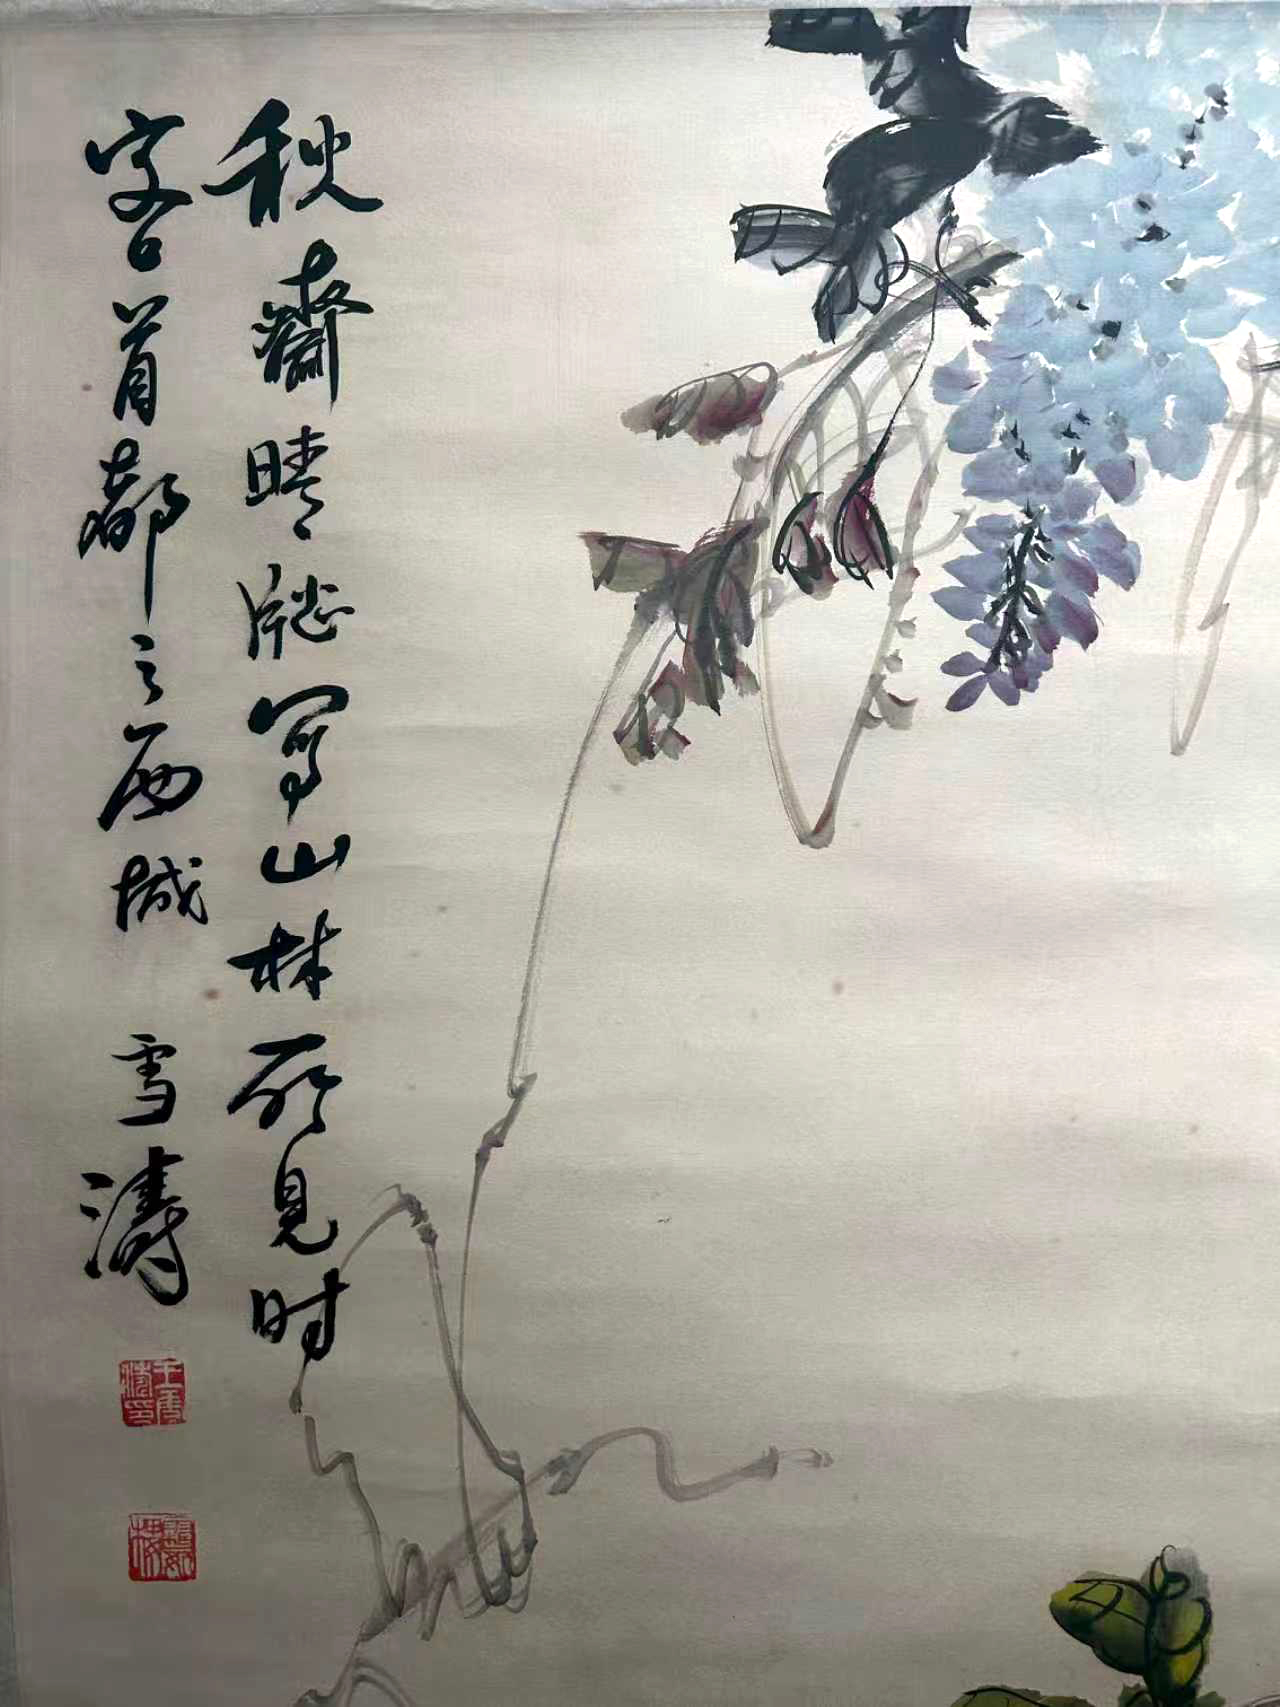 秋斋晴牕写山林所见时
客首都之西城 雪涛
王雪涛印